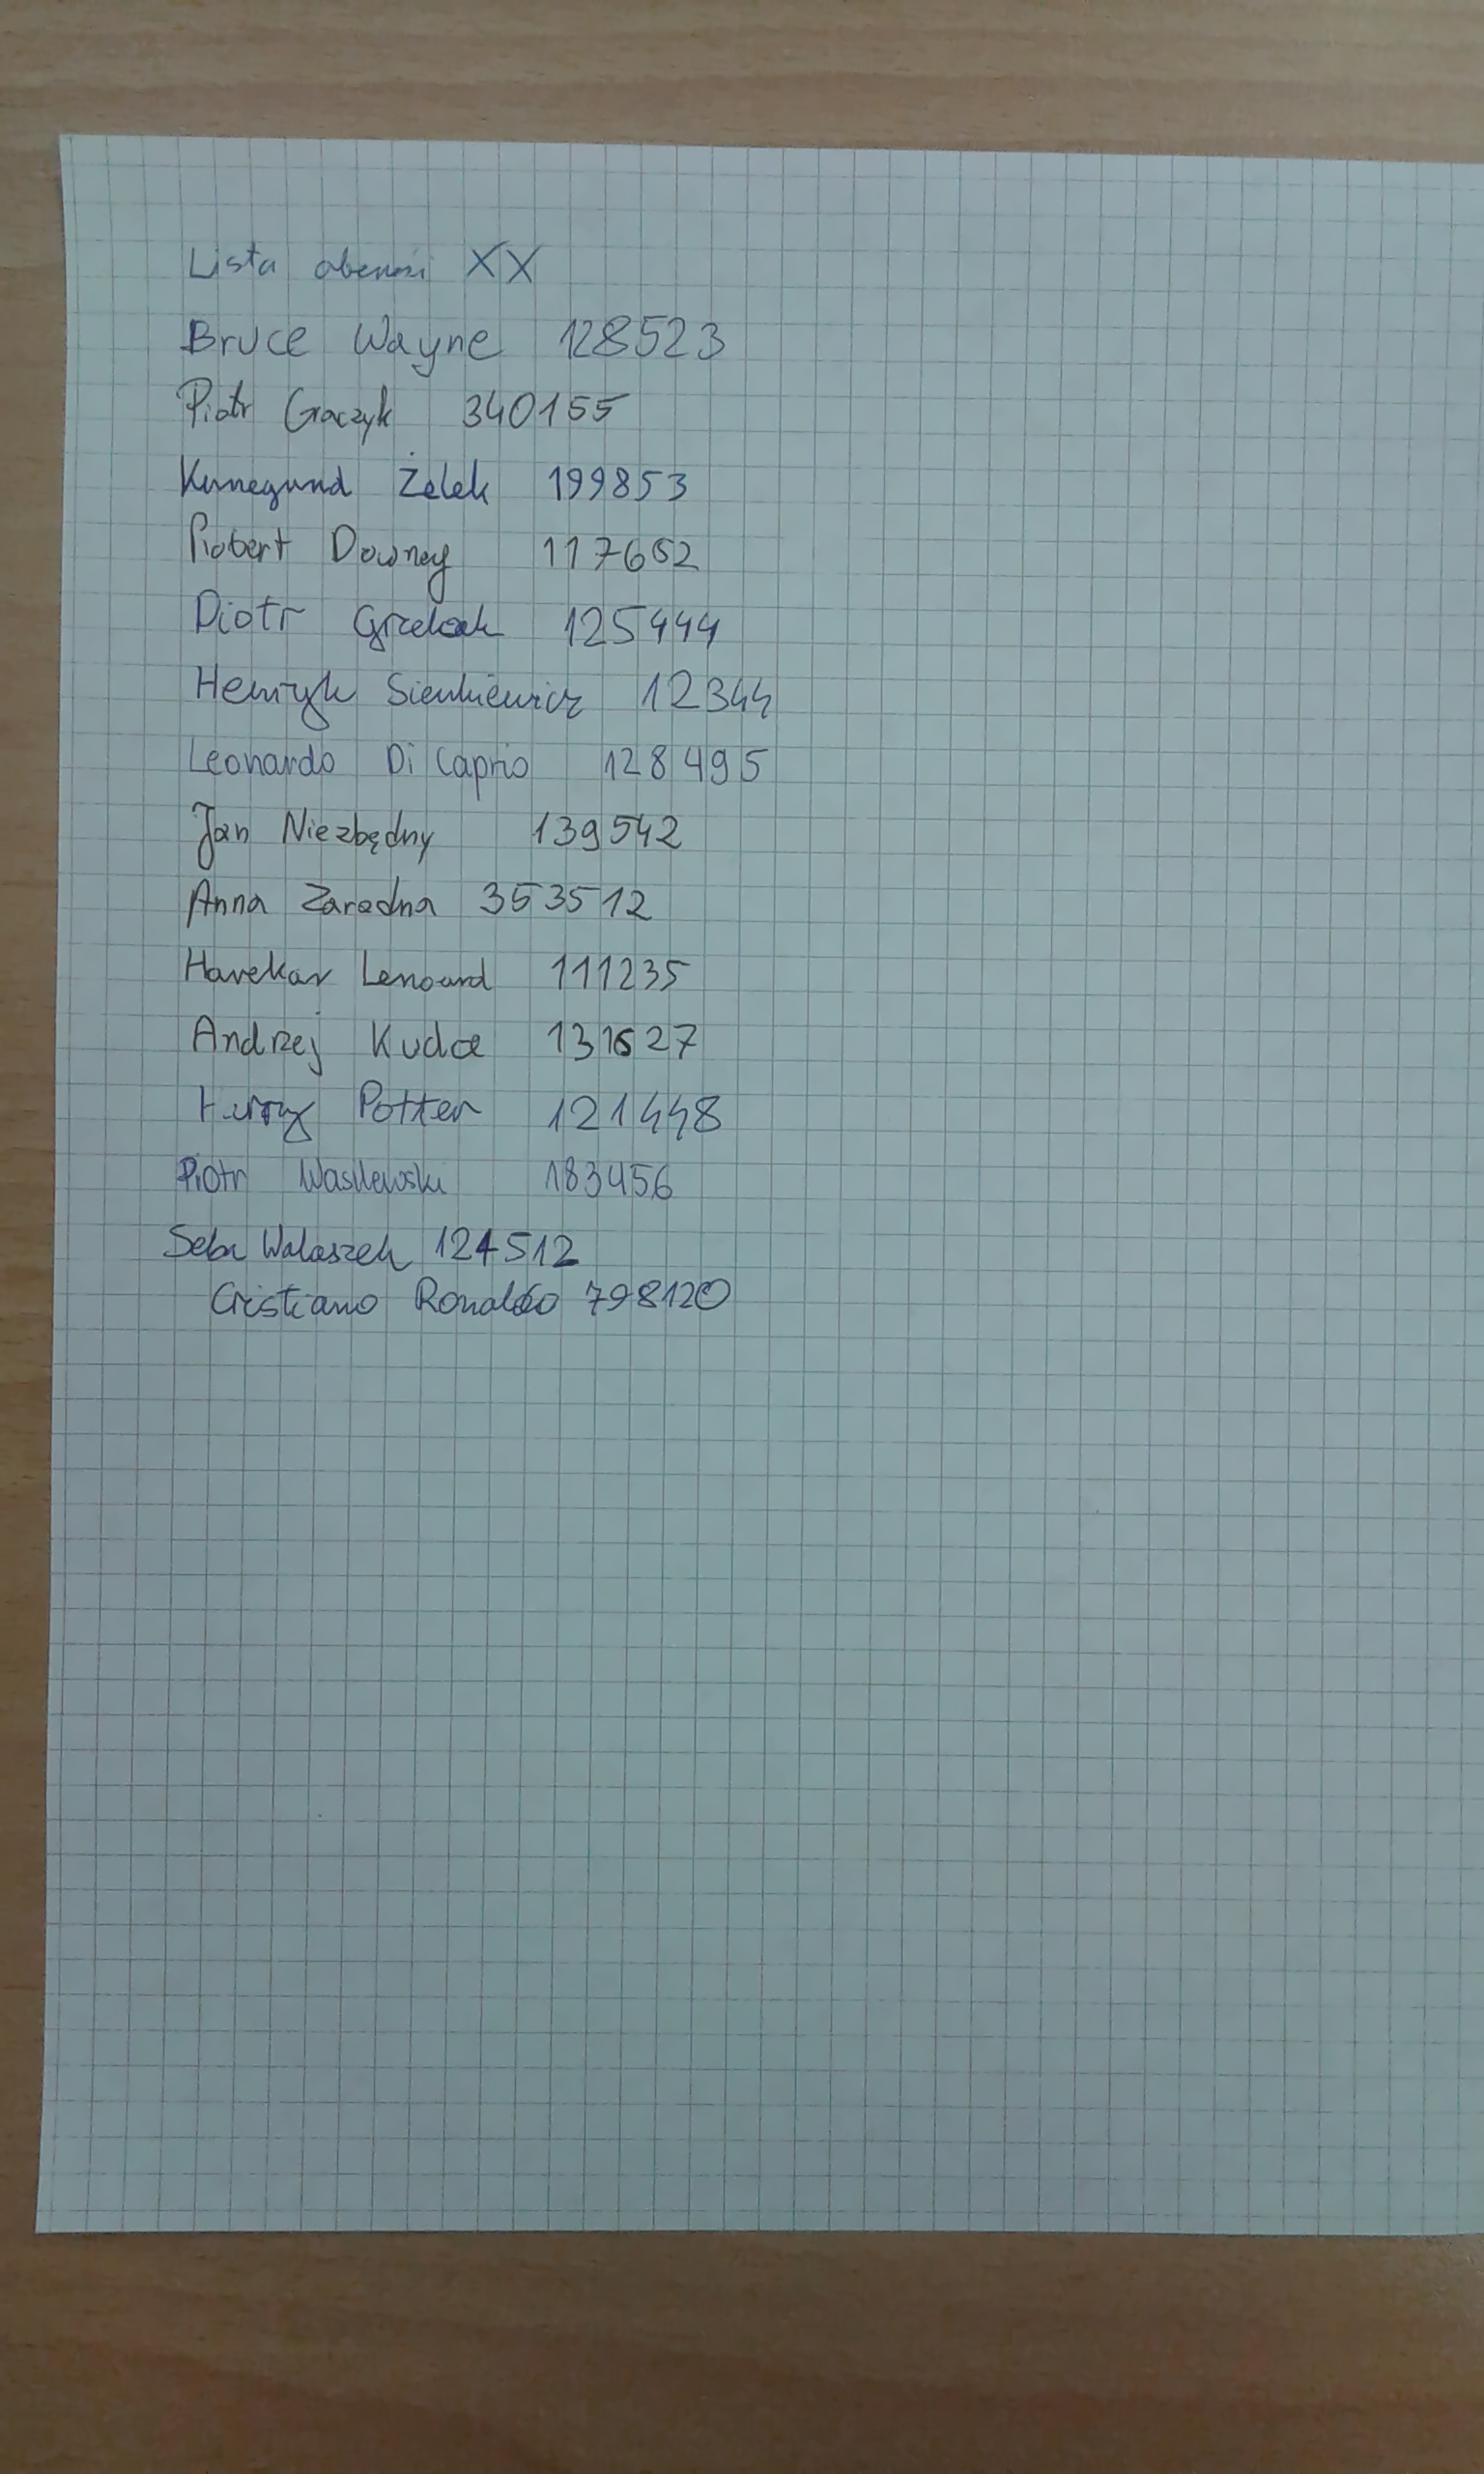 Lista obecności XX
Bruce Wayne 128523
Piotr Graczyk 340155
Kunegund Żelek 199853
Robert Downey 117652
Piotr 125444
Henryk Sienkiewicz 12344
Leonardo Di Caprio 128495
Jan Niezbędny 139542
Anna Zaradna 353512
Harekar Lenoard 111235
Andrzej Kudła 131527
Harry Potter 121448
Piotr Wasilewski 183456
Seba Walaszek 124512
Cristiano Ronaldo 798120